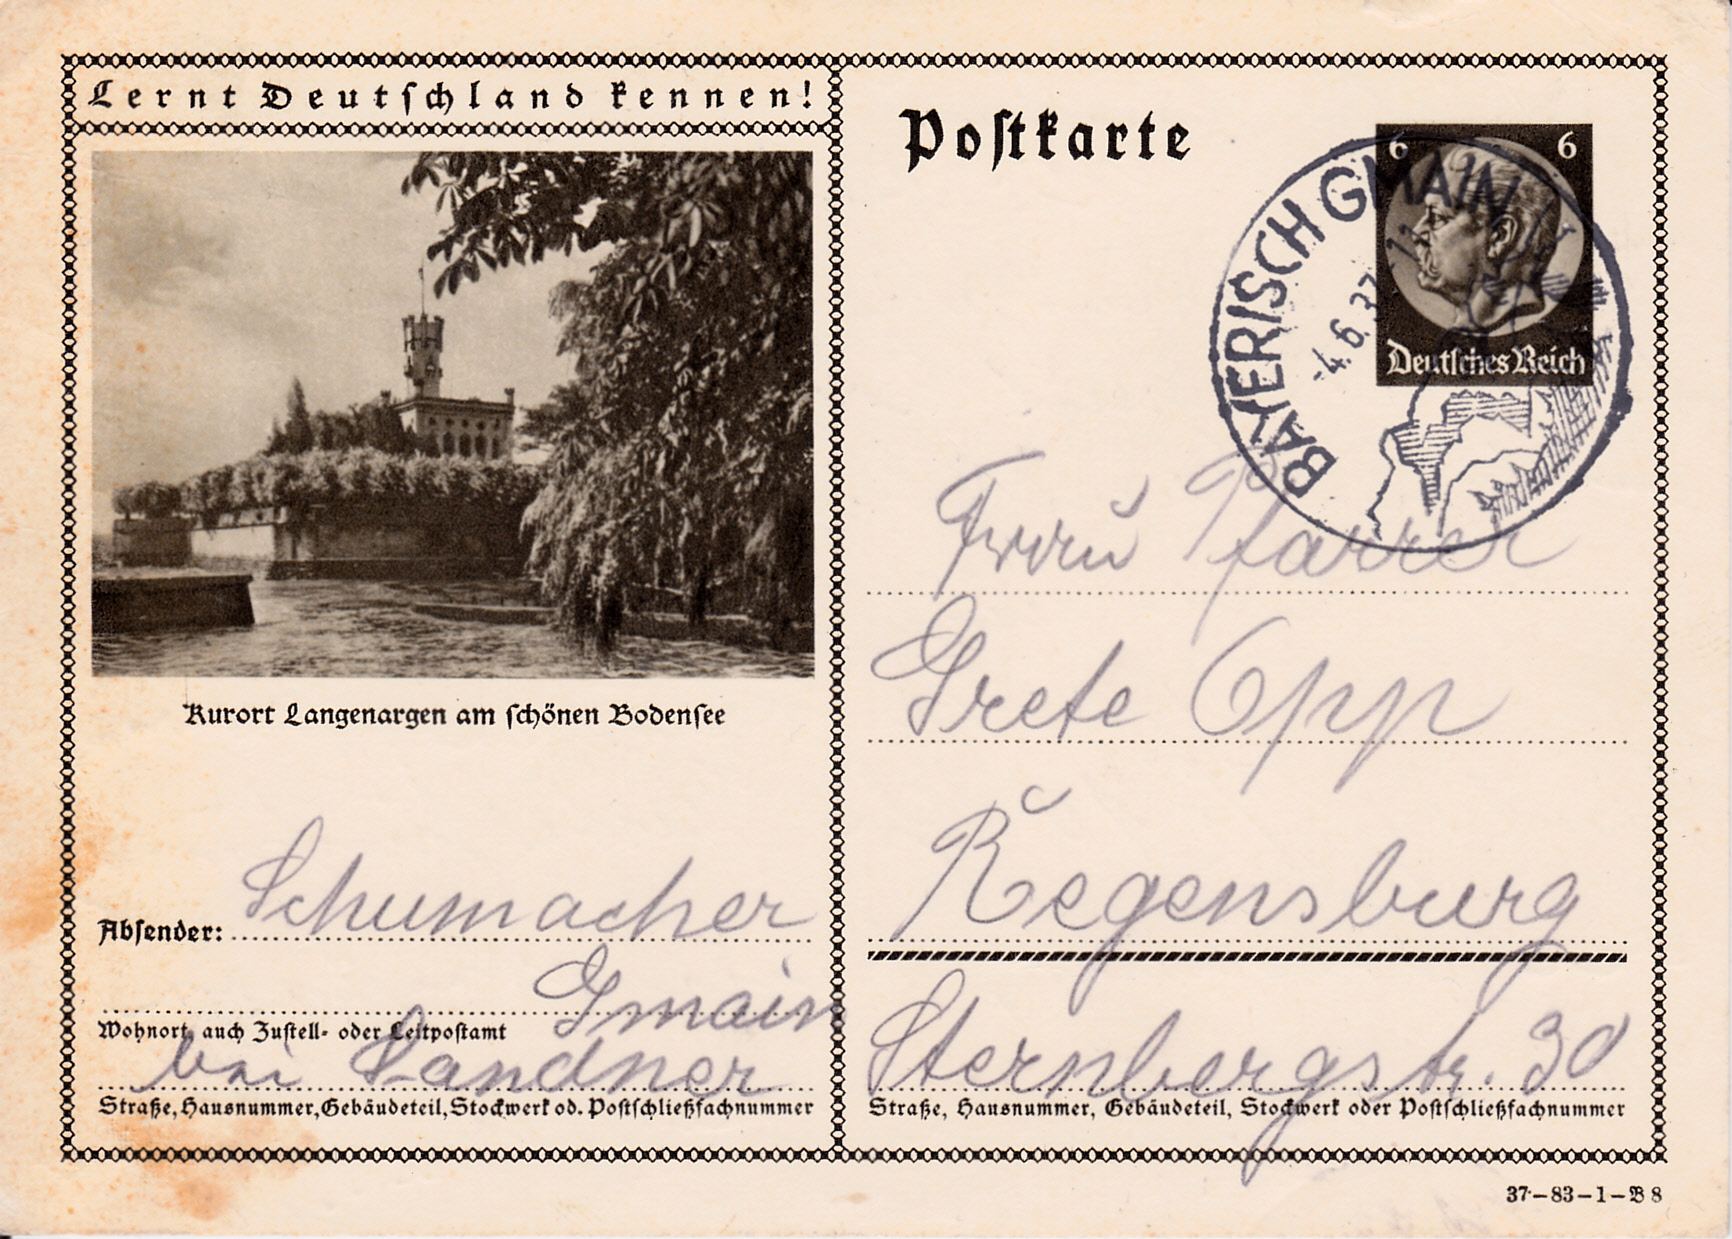 Lernt Deutschland kennen!
Kurort Langenargen am schönen Bodensee
Absender: Schumacher
Gmain
Wohnort, auch Zustell- oder Leitpostamt
bei Landner
Straße, Hausnummer, Gebäudeteil, Stockwerk od. Postschließfachnummer
Postkarte
6 6
Deutsches Reich
BAYERISCH GMAIN
-4.6.37
Frau Pfarrer
Grete Opp
Regensburg
Sternbergstr. 30
Straße, Hausnummer, Gebäudeteil, Stockwerk oder Postschließfachnummer
37-83-1-B 8